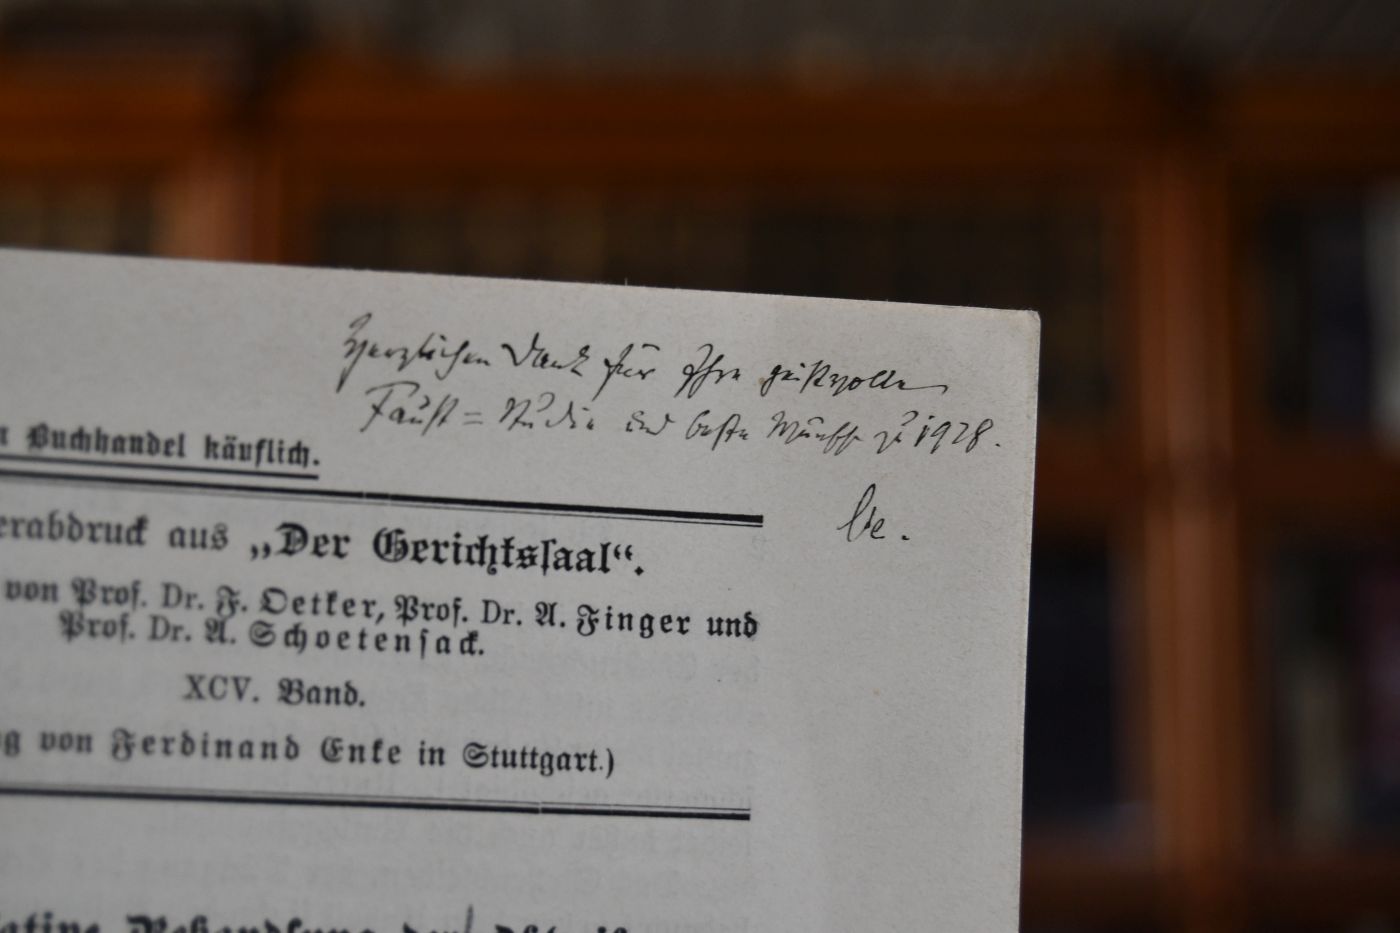 Herzlichen Dank für Ihre geistvolle
Faust=Studie und beste Wünsche zu 1928.
Buchhandel käuflich.
erabdruck aus „Der Gerichtssaal“.
von Prof. Dr. F. Oetker, Prof. Dr. A. Finger und
Prof. Dr. A. Schoetensack.
XCV. Band.
g von Ferdinand Enke in Stuttgart.)